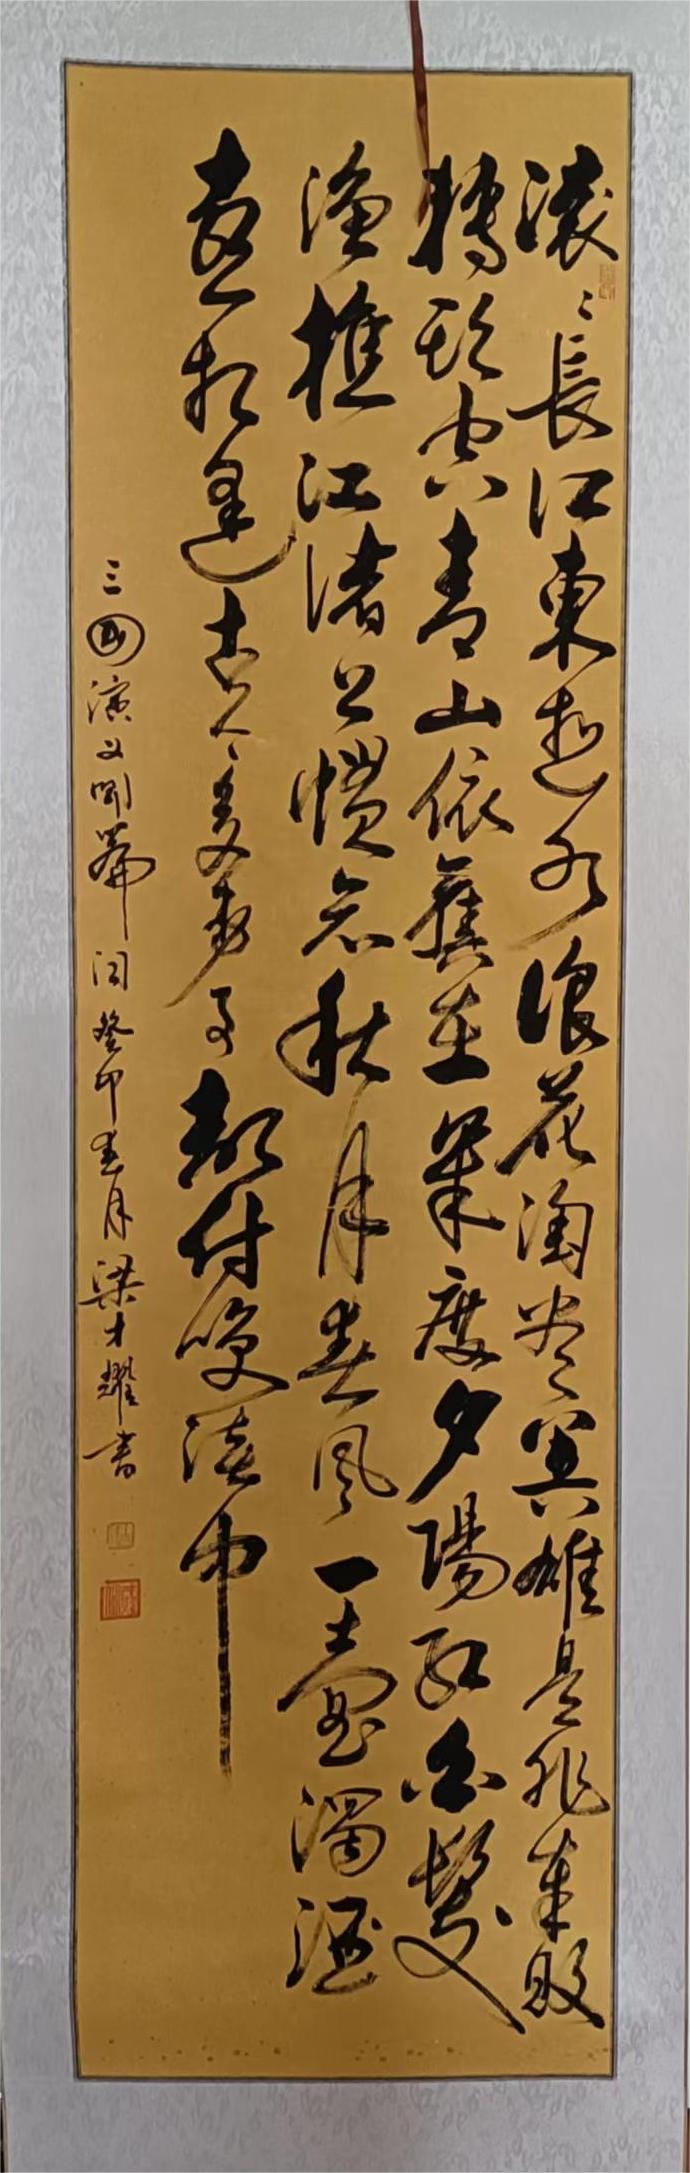 滚〻長江東逝水浪花淘尽英雄是非成敗
轉頭空青山依舊在幾度夕陽紅白髮
漁樵江渚上慣看秋月春風一壺濁酒
喜相逢古今多少事都付笑談中
三國演义開篇词癸卯春月梁才耀書